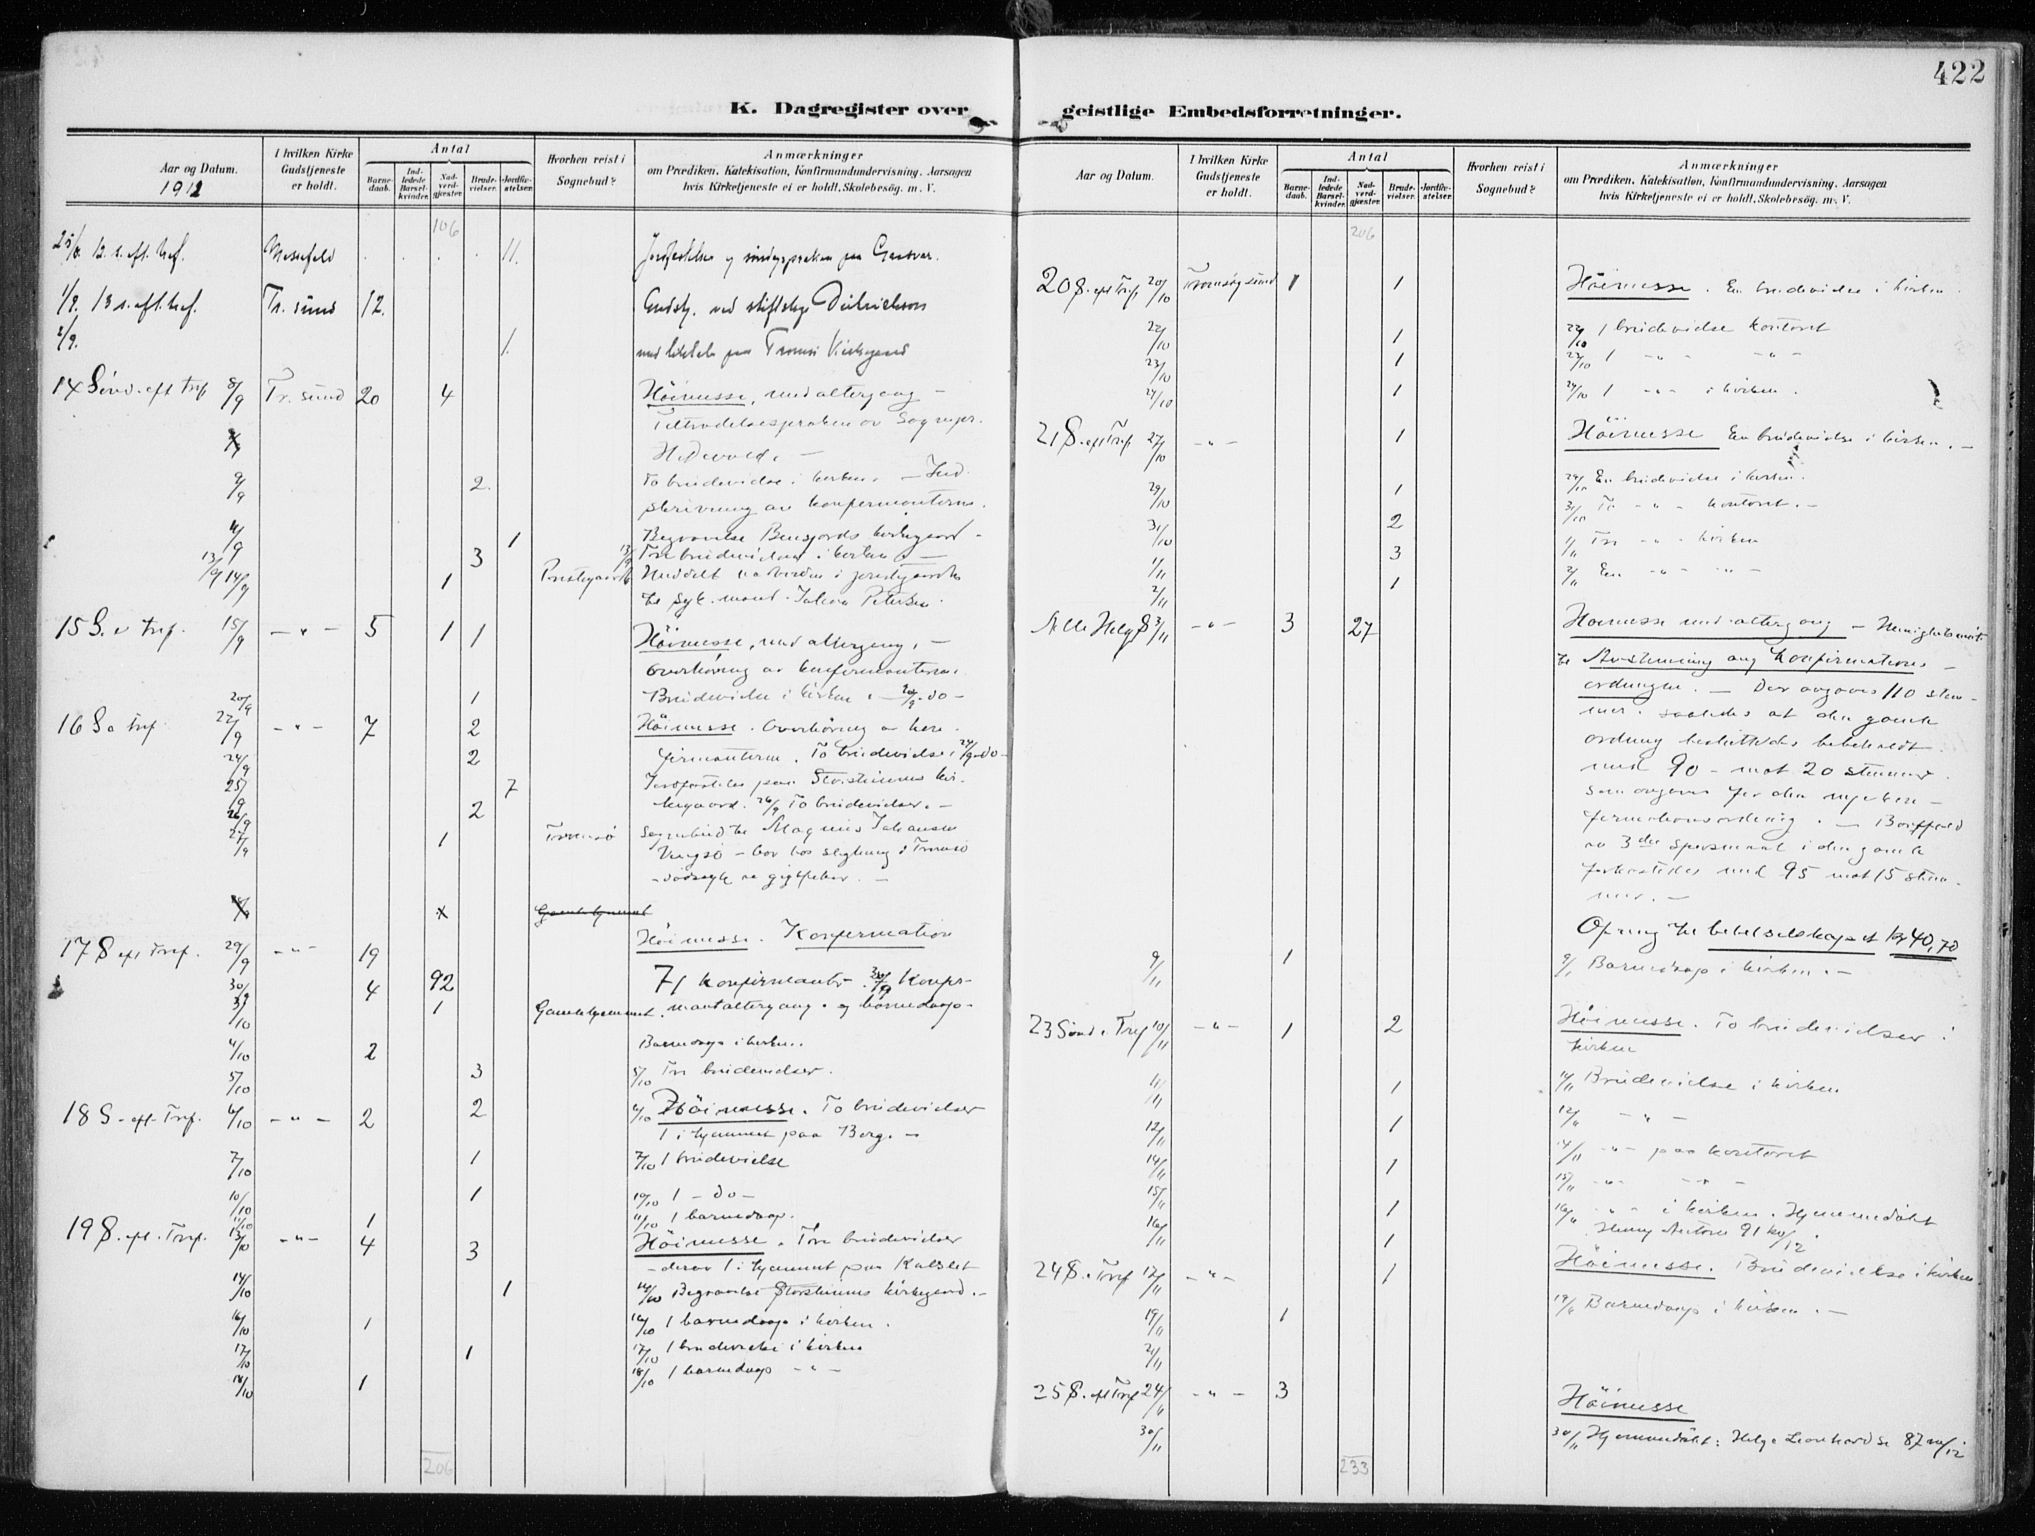 422
K. Dagregister over geistlige Embedsforretninger.
Aar og Datum.
1912
I hvilken Kirke Gudstjeneste er holdt.
Antal
Barnedaab.
Indledede Barselkvinder.
Nadverdgjæster.
Brudevielser.
Jordfæstelser.
Hvorhen reist i Sognebud?
Anmærkninger
om Prædiken, Katekisation, Konfirmandundervisning, Aarsagen
hvis Kirketjeneste ei er holdt, Skolebesøg. m. V.
106
25/8 12. s. eft. tref. . . . . 11.
1/9. 13 s. eft. tref. Tr. sund 12.
2/9. 1. Tromsö Kirkegaard
14 Sönd. eft tref 8/9 Tr. sund 20 4 Höimesse, med altergang –
Tiltrædelsespræken av Sognepr.
9/9 2. To brudevielse i kirken. – Ind
skrivning av konfirmanterne.
11/9 1 Begravelse Bensjords kirkegaard –
13/9 3 13/9 Tre brudevielser i kirken –
14/9 1 Prestegaarden Meddelt nadverden i prestegaarden
15 S. e tref. 15/9 – " – 5 1 1 Höimesse, med altergang. –
overhöring av konfirmanterne.
20/9 1 Brudevielse i kirken. – 20/9 – do –
16 S e tref. 22/9 – " – 7 2 Höimesse. Overhöring av kon-
24/9 2 firmanterne. To brudevielse, 24/9 – do –
25/9 7 Jordfæstelse paa Storsteinnes kir-
26/9 2 kegaard. 26/9 To brudevielser. –
27/9 1 Tromsö Sognebud til Magnus Johansen
– bor hos slegtning i Tromsö
x
17 S eft Tref. 29/9 – " – 19 Höimesse. Konfirmation
30/9 4 92 71 konfirmanter. 30/9 Konfir-
3/10 1 Gamlehjemmet. mantaltergang. og barnedaap –
4/10 2 Barnedaap i kirken.
5/10 3 5/10 Tre brudevielser.
18 S. eft. Tref. 6/10 – " – 2 2 6/10 Höimesse. To brudevielser
1 i hjemmet paa Berg. –
7/10 1 7/10 1 brudevielse
10/10 1 10/10 1 – do –
11/10 1 11/10 1 barnedaap.
19 S. eft. Tref. 13/10 – " – 4 3 Höimesse. Tre brudevielser
– derav 1 i hjemmet paa Kalslet
14/10 1 14/10 Begravelse Storsteinnes kirkegaard. –
16/10 1 16/10 1 barnedaap i kirken.
17/10 1 17/10 1 brudevielse i kirken
18/10 1 18/10 1 barnedaap – " –
206
Aar og Datum.
I hvilken Kirke Gudstjeneste er holdt.
Antal
Barnedaab.
Indledede Barselkvinder.
Nadverdgjæster.
Brudevielser.
Jordfæstelser.
Hvorhen reist i Sognebud?
Anmærkninger
om Prædiken, Katekisation, Konfirmandundervisning, Aarsagen
hvis Kirketjeneste ei er holdt, Skolebesøg. m. V.
206
20 S. eft Tref. 20/10 Tromsöysund 1 1 Höimesse. En brudevielse i kirken.
22/10 1 22/10 1 brudevielse kontoret
23/10 1 23/10 1 – " – – " –
24/10 1 24/10 1 – " – i kirken.
21 S. eft Tref. 27/10 – " – 1 Höimesse En brudevielse i kirken. –
29/10 1 29/10 En brudevielse i kirken.
31/10 2 31/10 To – " – kontoret. –
1/11 3 1/11 Tre – " – kirken
2/11 1 2/11 En – " – – " –
Alle Helg S 3/11 – " – 3 27 Höimesse med altergang – Menighetsmöte
til Avstemning ang konfirmations-
ordningen. – Der avgaves 110 stem-
mer. saaledes at den gamle
ordning besluttedes bebeholdt
med 90 – mot 20 stemmer
som avgaves for den nye kon-
firmationsordning. – Bortfald
av 3die spörsmaal i den gamle
forkastedes med 95 mot 15 stem-
mer. –
Ofring til bibelselskapet kr 40,70
9/11 1 9/11 Barnedaap i kirken. –
23 Sönd. e Tref 10/11 – " – 1 2 Höimesse. To brudevielser i
kirken
11/11 1 11/11 Brudevielse i kirken
12/11 1 12/11 – " –
14/11 1 14/11 – " – paa kontoret
15/11 1 15/11 – " – – " –
16/11 1 16/11 – " – i kirken. Hjemmedöbt
24 S. e Tref 17/11 – " – 1 Höimesse. Brudevielse i kirken.
19/11 1 19/11 Barnedaap i kirken. –
21/11
25 S. eft Tref 24/11 – " – 3 Höimesse
30/11 30/11 Hjemmedöbt: Helge
233